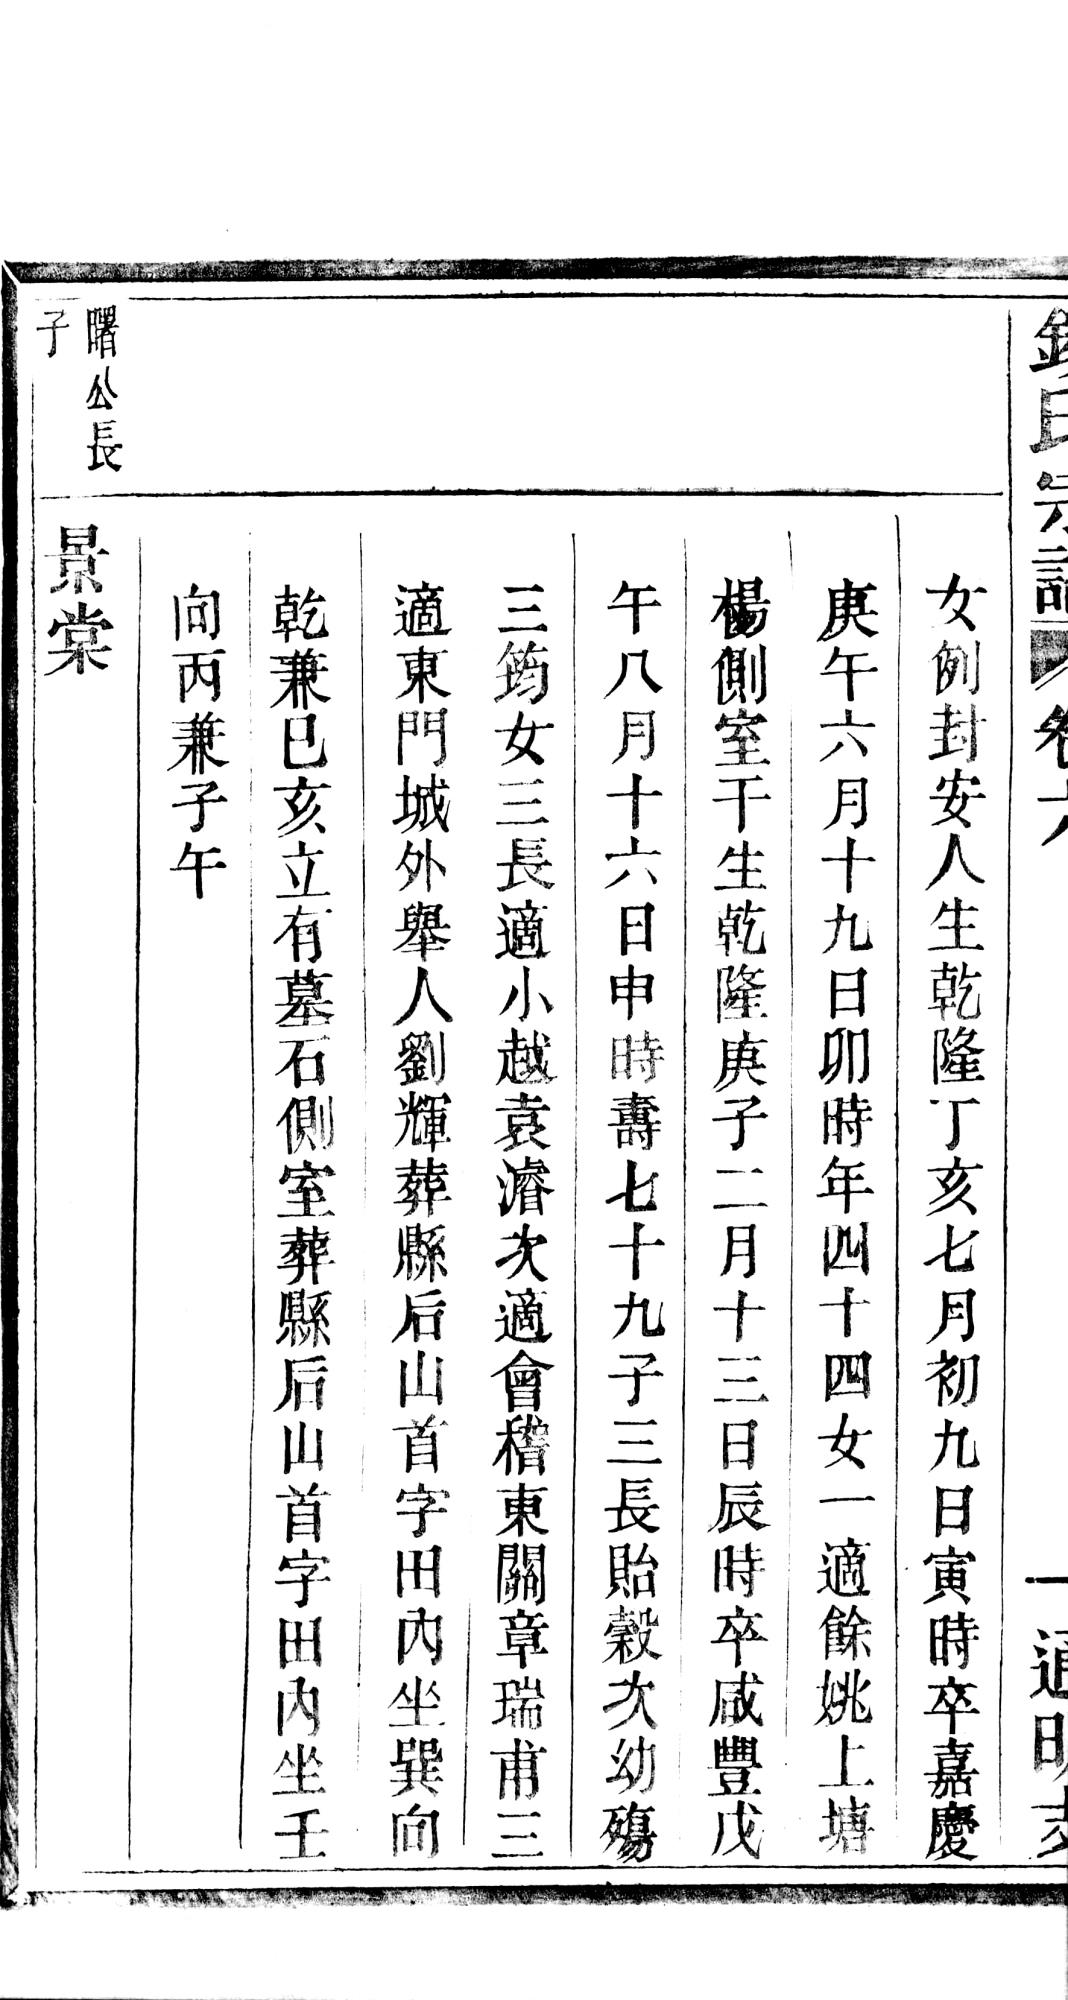 錢氏宗譜 卷六
一 通明支
女例封安人生乾隆丁亥七月初九日寅時卒嘉慶
庚午六月十九日卯時年四十四女一適餘姚上塘
楊側室干生乾隆庚子二月十三日辰時卒咸豐戊
午八月十六日申時壽七十九子三長貽穀次幼殤
三筠女三長適小越袁濬次適會稽東關章瑞甫三
適東門城外舉人劉輝葬縣后山首字田內坐巽向
乾兼巳亥立有墓石側室葬縣后山首字田內坐壬
向丙兼子午
曙公長
子
景棠